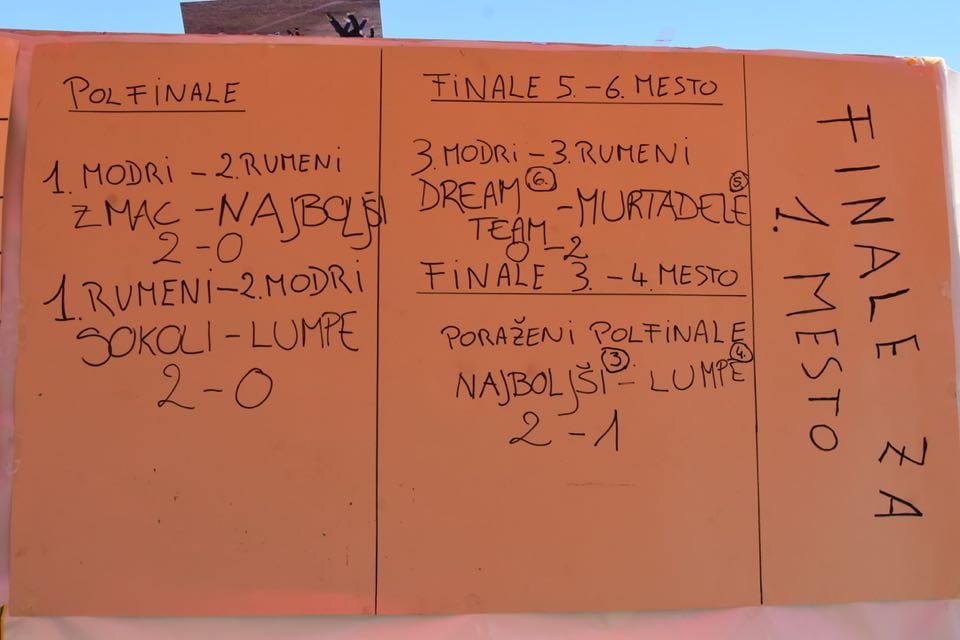 POLFINALE
1. MODRI - 2. RUMENI
ZMAC - NAJBOLJŠI
2 - 0
1. RUMENI - 2. MODRI
SOKOLI - LUMPE
2 - 0
FINALE 5. - 6. MESTO
3. MODRI - 3. RUMENI
DREAM 6. - MURTADELE 5.
TEAM
0 - 2
FINALE 3. - 4. MESTO
PORAŽENI POLFINALE
NAJBOLJŠI 3. - LUMPE 4.
2 - 1
FINALE ZA
1. MESTO